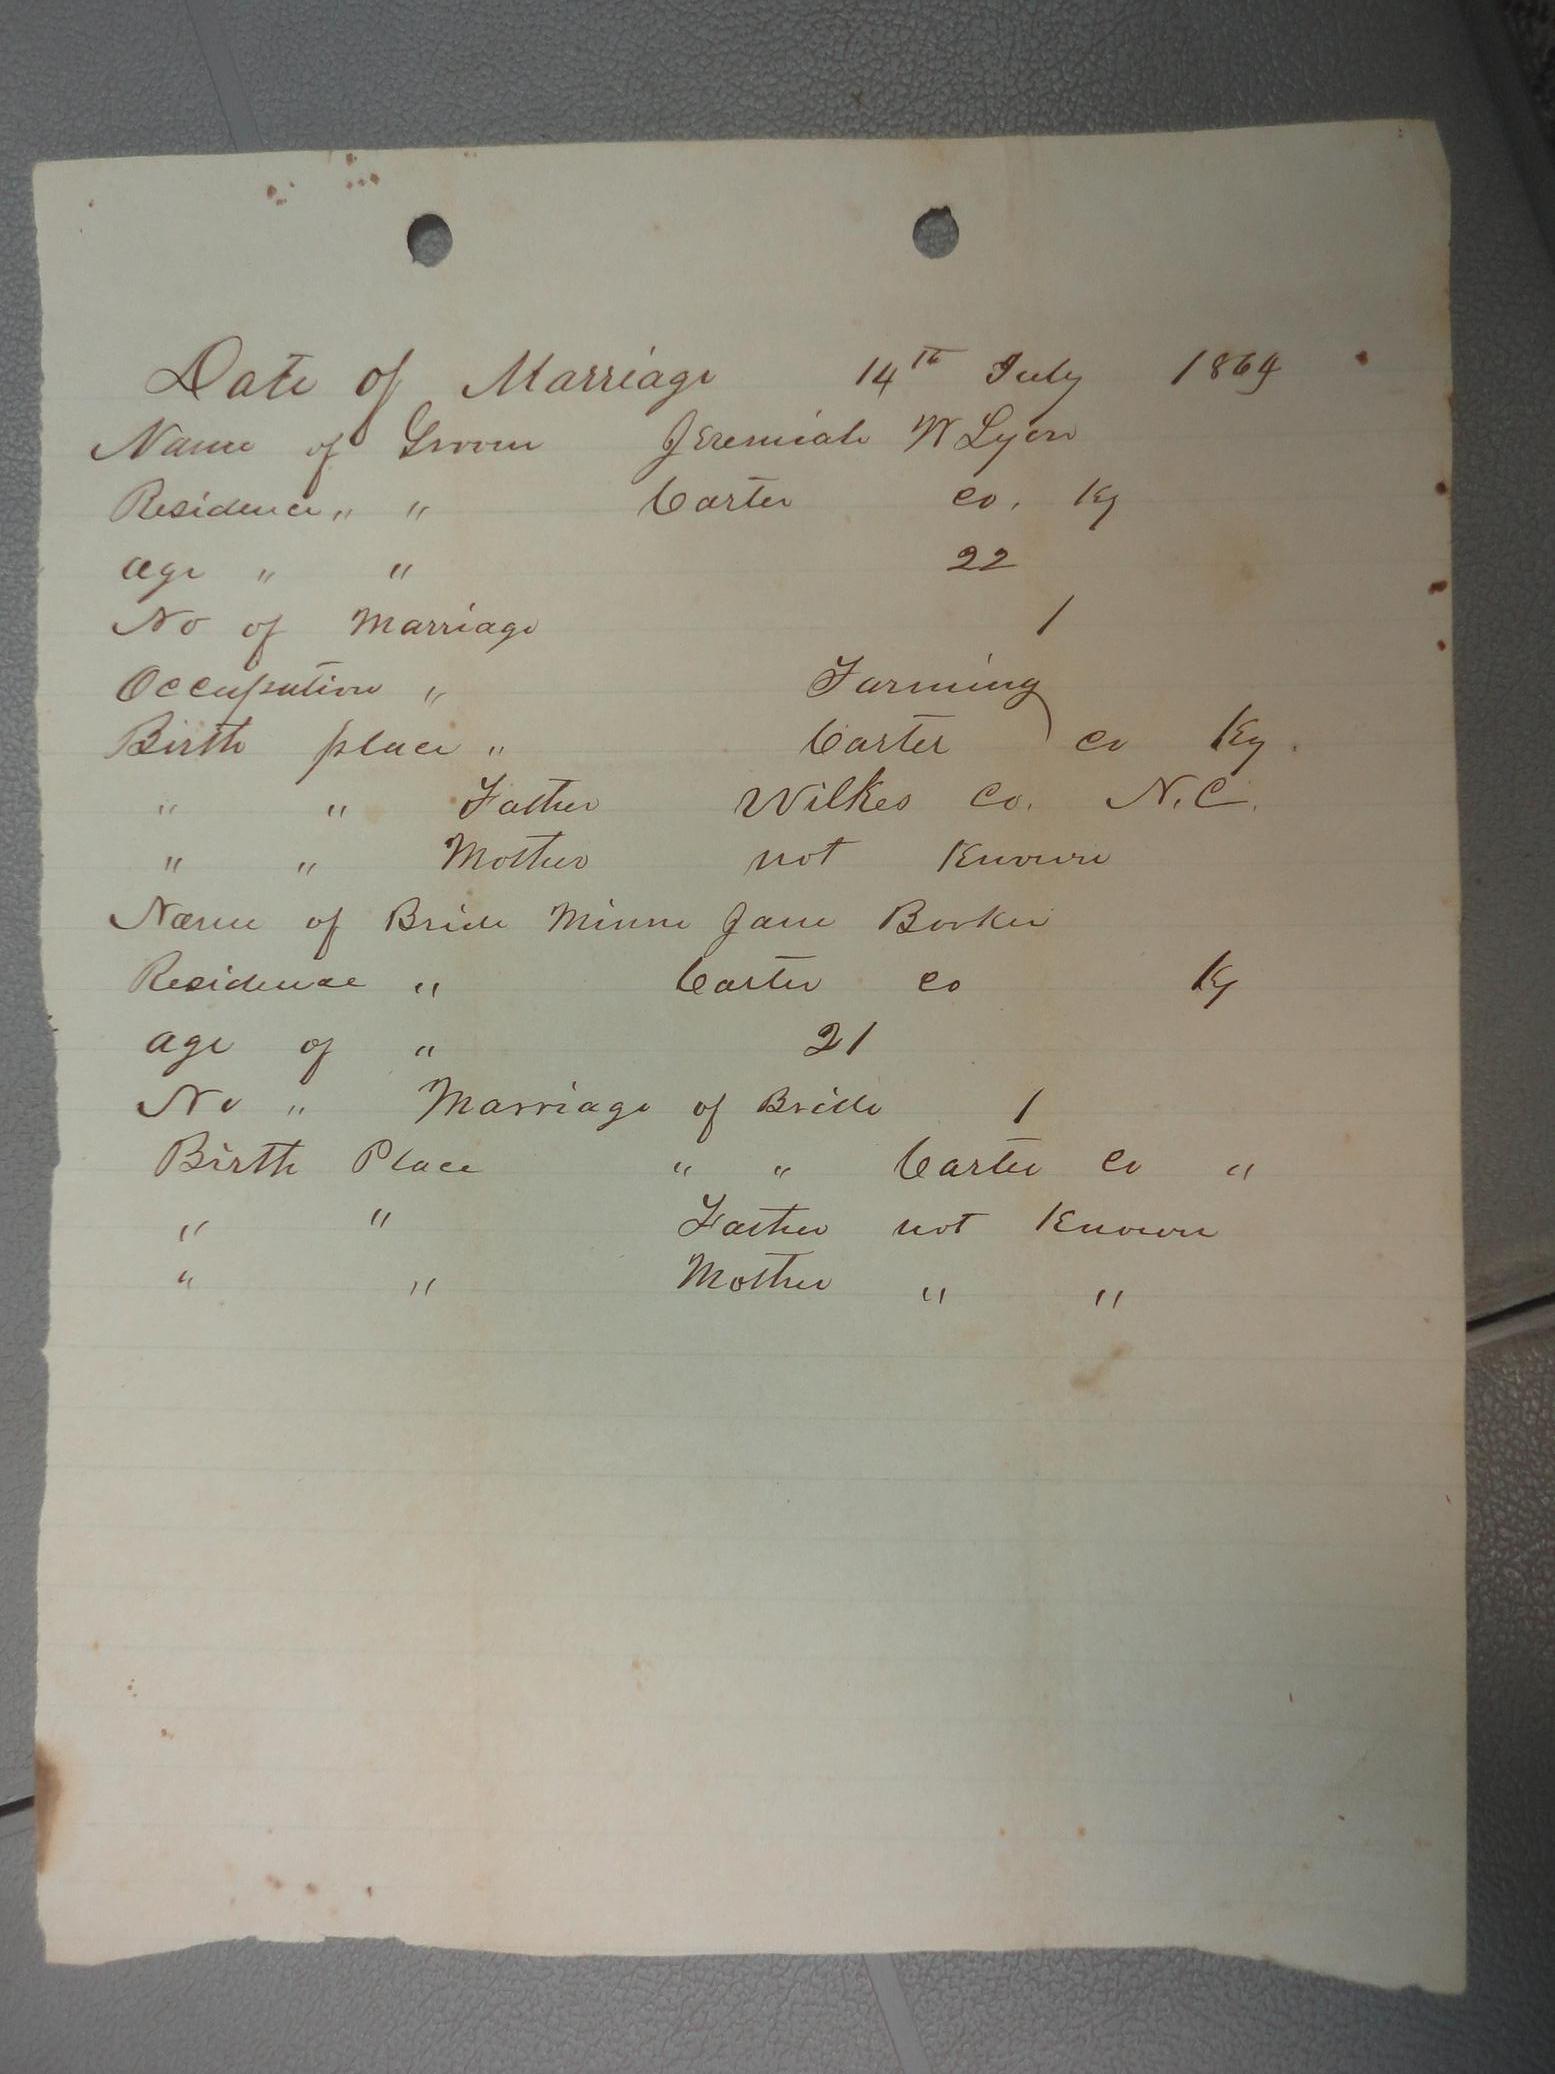 Date of Marriage 14th July 1864
Name of Groom Jeremiah W Lyon
Residence " " Carter Co. Ky
Age " " 22
No of Marriage 1
Occupation " Farming
Birth place " Carter Co Ky.
" " Father Wilkes Co. N.C.
" " Mother not Known
Name of Bride Jane
Residence " Carter Co Ky
Age of " 21
No " Marriage of Bride 1
Birth Place " " Carter Co "
" " Father not Known
" " Mother " "